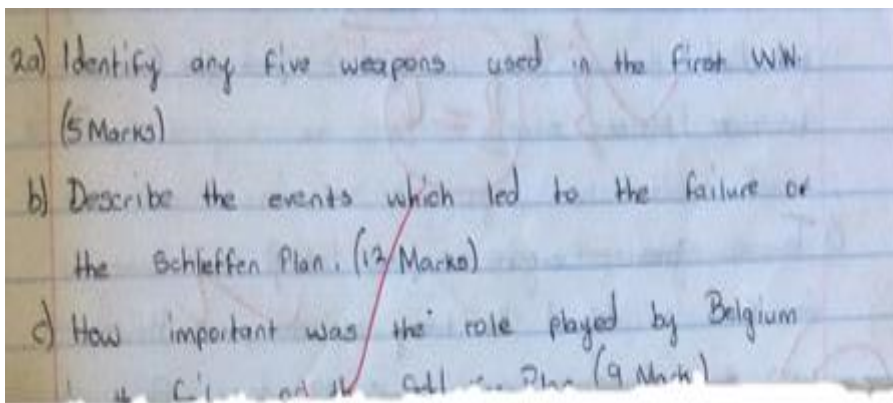 2a) Identify any five weapons used in the first WW.
(5 Marks)
b) Describe the events which led to the failure of
the Schleffen Plan. (12 Marks)
c) How important was the role played by Belgium
(9 Mark)